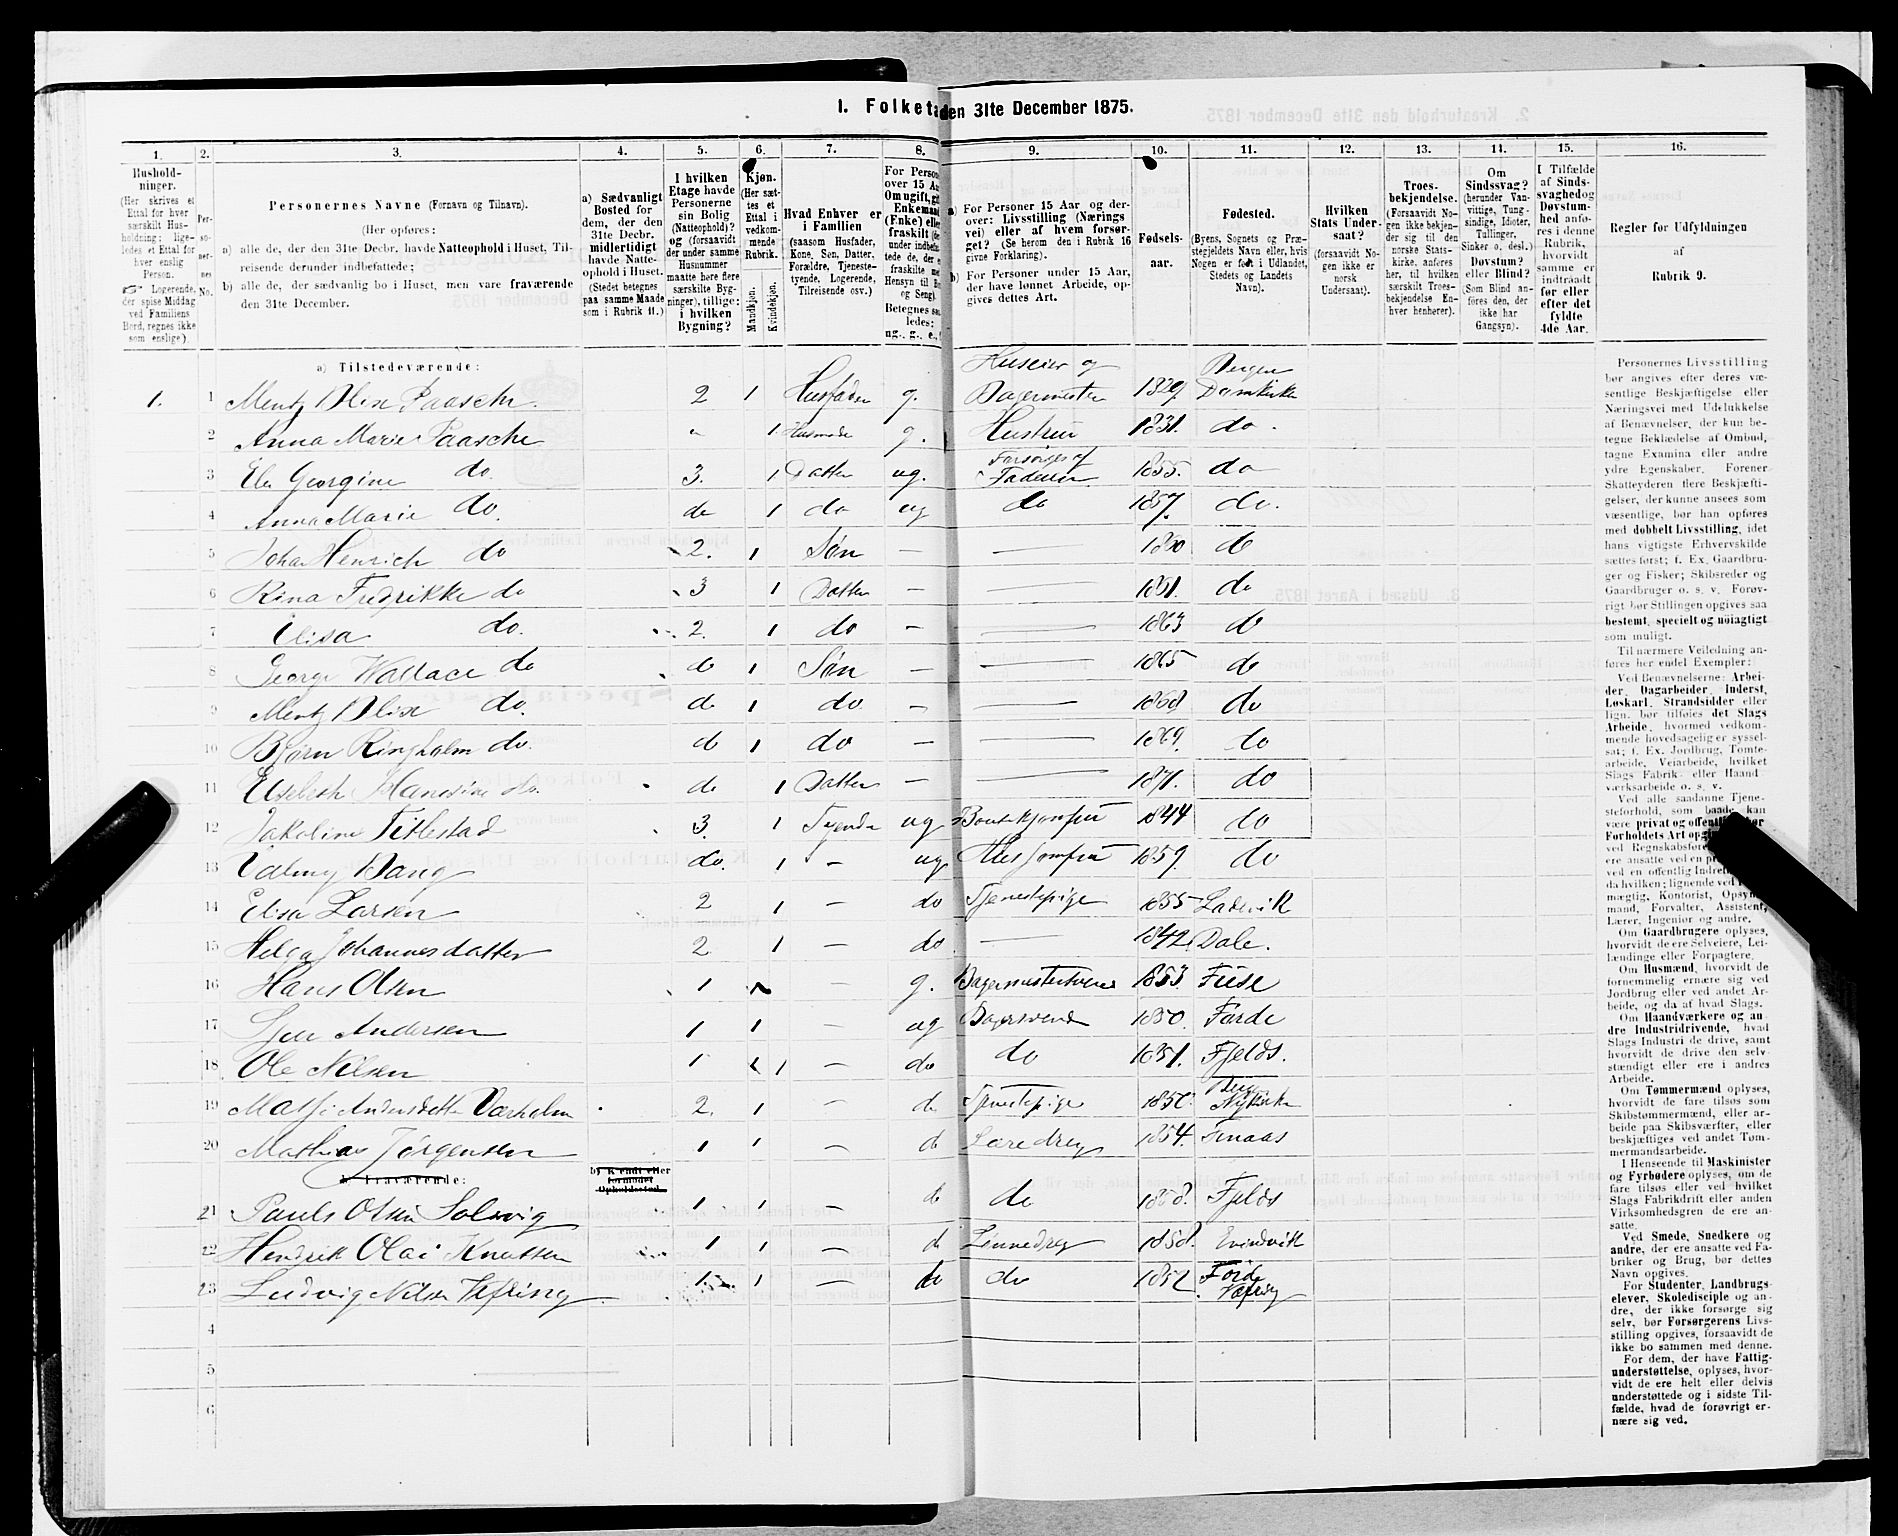 1. Folketa den 31te December 1875.
1. 2. 3. 4. 5. 6. 7. 8. 9. 10. 11. 12. 13. 14. 15. 16.
Hushold-
ninger.
(Her skrives et
Ettal for hver
særskilt Hus-
holdning; lige-
ledes et Ettal for
hver enslig
Person.
☞ Logerende,
der spise Middag
ved Familiens
Bord, regnes ikke
som enslige).
Per-
so-
ner-
nes
No.
Personernes Navne (Fornavn og Tilnavn).
(Her opføres:
a) alle de, der den 31te Decbr. havde Natteophold i Huset, Til-
reisende derunder indbefattede;
b) alle de, der sædvanlig bo i Huset, men vare fraværende
den 31te December.
a) Sædvanligt
Bosted for
dem, der den
31te Decbr.
midlertidigt
havde Natte-
ophold i Huset.
(Stedet betegnes
paa samme Maade
som i Rubrik 11.)
I hvilken
Etage havde
Personerne
sin Bolig
(Natteophold)?
og (forsaavidt
der under samme
Husnummer
maatte here flere
særskilte Byg-
ninger), tillige:
i hvilken
Bygning?
Kjøn.
(Her sæt-
tes et
Ettal i
vedkom-
mende
Rubrik.
Mandkjøn.
Kvindekjøn.
Hvad Enhver er
i Familien
(saasom Husfader,
Kone, Søn, Datter,
Forældre, Tjeneste-
tyende, Logerende,
Tilreisende osv.)
For Person
over 15 Aa
Om ugift, gi
Enkeman
(Enke) elle
fraskilt
Betegnes saa
ledes:
ug., g., e.,
a) For Personer over 15 Aar og der-
over: Livsstilling (Nærings
vei) eller af hvem forsør-
get? (Se herom den i Rubrik 16
givne Forklaring).
b) For Personer under 15 Aar,
der have lønnet Arbeide, op-
gives dettes Art.
Fødsels-
aar.
Fødested.
(Byens, Sognets og Præ-
stegjeldets Navn eller, hvis
Nogen er født i Udlandet,
Stedets og Landets
Navn).
Hvilken
Stats Under-
saat?
(forsaavidt No-
gen ikke er
norsk
Undersaat).
Troes-
bekjendelse.
(Forsaavidt No-
gen ikke bekjen-
der sig til den
norske Stats-
kirke, anføres
her, til hvilken
særskilt Troes-
bekjendelse En-
hver henhører).
Om
Sindssvag?
(herunder Van-
vittige, Tung-
sindige, Idioter,
Tullinger,
Sinker o. desl.)
Døvstum?
eller Blind?
(Som Blind an-
føres den, der
ikke har
Gangsyn).
I Tilfælde
af Sinds-
svaghed og
Døvstum-
hed anfø-
res i denne
Rubrik,
hvorvidt
samme er
indtraadt
før eller
efter det
fyldte
4de Aar.
Regler for Udfyldningen
af
Rubrik 9.
a) Tilstedeværende:
1. 1 Mentz Blix Paasche. 2 1 Husfader g. Huseier og Bagermester 1829. Bergen Domkirke
2 Anna Marie Paasche " 1 Husmode g. Hustru 1831. do.
3 Georgine do. 3. 1 Datter ug. Forsørges af Faderen 1855. do
4 Anna Marie do. do 1 do ug do 1857. do.
5 Johan Henrich do 2. 1 Søn — — 1860 do
6 Rina Fredrikke do 3 1 Datter — — 1861. do
7 Elisa do. 2. 1 do — — 1863 do
8 George Wallace do do 1 Søn — — 1865 do
9 Mentz Blix do. do 1 do. — — 1868 do
10 Bjørn Ringholm do. do 1 do — — 1869. do
11 Elisebeth Hansine do. do 1 Datter — — 1871. do
12 Jakoline Titlestad 3. 1 Tyende ug 1844 do
13 Bang do. 1 — ug 1859. do
14 Elisa Larsen 2 1 — do Tjenestepige 1855 Ladevik
15 Helga Johannesdatter 2 1 — do — 1842 Dale.
16 Hans Olsen 1 — g. Bagermestersvend 1853. Fuse
17 Andersen 1 1 — ug Bagersvend 1850. Førde
18 Ole Nilsen 1 1 — do do 1851. Fjelds.
19 Andersdatter Varholm 2. 1 — do Tjenestepige Nykirke
20 Mathias Jørgensen 1 1 — do Læredreng 1854.
b) Fraværende:
b) Kjendt eller
formodet
Opholdssted.
21 Olsen Solsvig 1 1 do do 1858. Fjelds
22 Hendrik Olai Knutsen 1 1 — do 1858. Evindvik
23 Ludvig Nilsen Vefring 1 1 — do do Førde
4
5
6
Personernes Livsstilling
bør angives efter deres væ-
sentlige Beskjæftigelse eller
Næringsvei med Udelukkelse
af Benævnelser, der kun be-
tegne Beklædelse af Ombud,
tagne Examina eller andre
ydre Egenskaber. Forener
Skatteyderen flere Beskjæfti-
gelser, der kunne ansees som
væsentlige, bør han opføres
med dobbelt Livsstilling, idet
hans vigtigste Erhvervskilde
sættes først; f. Ex. Gaardbru-
ger og Fisker; Skibsreder og
Gaardbruger o. s. v. Forøv-
rigt bør Stillingen opgives saa
bestemt, specielt og nøiagtigt
som muligt.
Til nærmere Veiledning an-
føres her endel Exempler:
Ved Benævnelserne: Arbei-
der, Dagarbeider, Inderst,
Løskarl, Strandsidder eller
lign. bør tilføies det Slags
Arbeide, hvormed vedkom-
mende hovedsagelig er syssel-
sat; f. Ex. Jordbrug, Tomte-
arbeide, Veiarbeide, hvilket
Slags Fabrik- eller Haand-
værksarbeide o. s. v.
Ved alle saadanne Tjene-
steforhold, som baade kan
være privat og offentligt bør
Forholdets Art op
ved Regnskabsføre
ere ansatte ved en p
ved en offentlig Indre
da hvilken; lignende ved
mægtig, Kontorist, Opsyns
mand, Forvalter, Assistent,
Lærer, Ingeniør og andre.
Om Gaardbrugere oplyses,
hvorvidt de ere Selveiere, Lei-
lændinge eller Forpagtere.
Om Husmænd, hvorvidt de
fornemmelig ernære sig ved
Jordbrug eller ved andet Ar-
beide, og da af hvad Slags.
Om Haandværkere og an
dre Industridrivende, hvad
Slags Industri de drive, samt
hvorvidt de drive den selv-
stændigt eller ere i andres
Arbeide.
Om Tømmermænd oplyses,
hvorvidt de fare tilsøs som
Skibstømmermænd, eller ar-
beide paa Skibsværfter, eller
beskjæftiges ved andet Tøm-
mermandsarbeide.
I Henseende til Maskinister
og Fyrbødere oplyses, om de
fare tilsøs eller ved hvilket
Slags Fabrikdrift eller anden
Virksomhedsgren de ere an-
satte.
Ved Smede, Snedkere og
andre, der ere ansatte ved Fa-
briker og Brug, bør dettes
Navn opgives.
For Studenter, Landbrugs-
elever, Skoledisciple og an-
dre, der ikke forsørge sig
selv, bør Forsørgerens Livs-
stilling opgives, forsaavidt de
ikke bo sammen med denne.
For dem, der have Fattig-
understøttelse, oplyses, hvor-
vidt de ere helt eller delvis
understøttede og i sidste Til-
fælde, hvad de forøvrigt er-
nære sig ved.